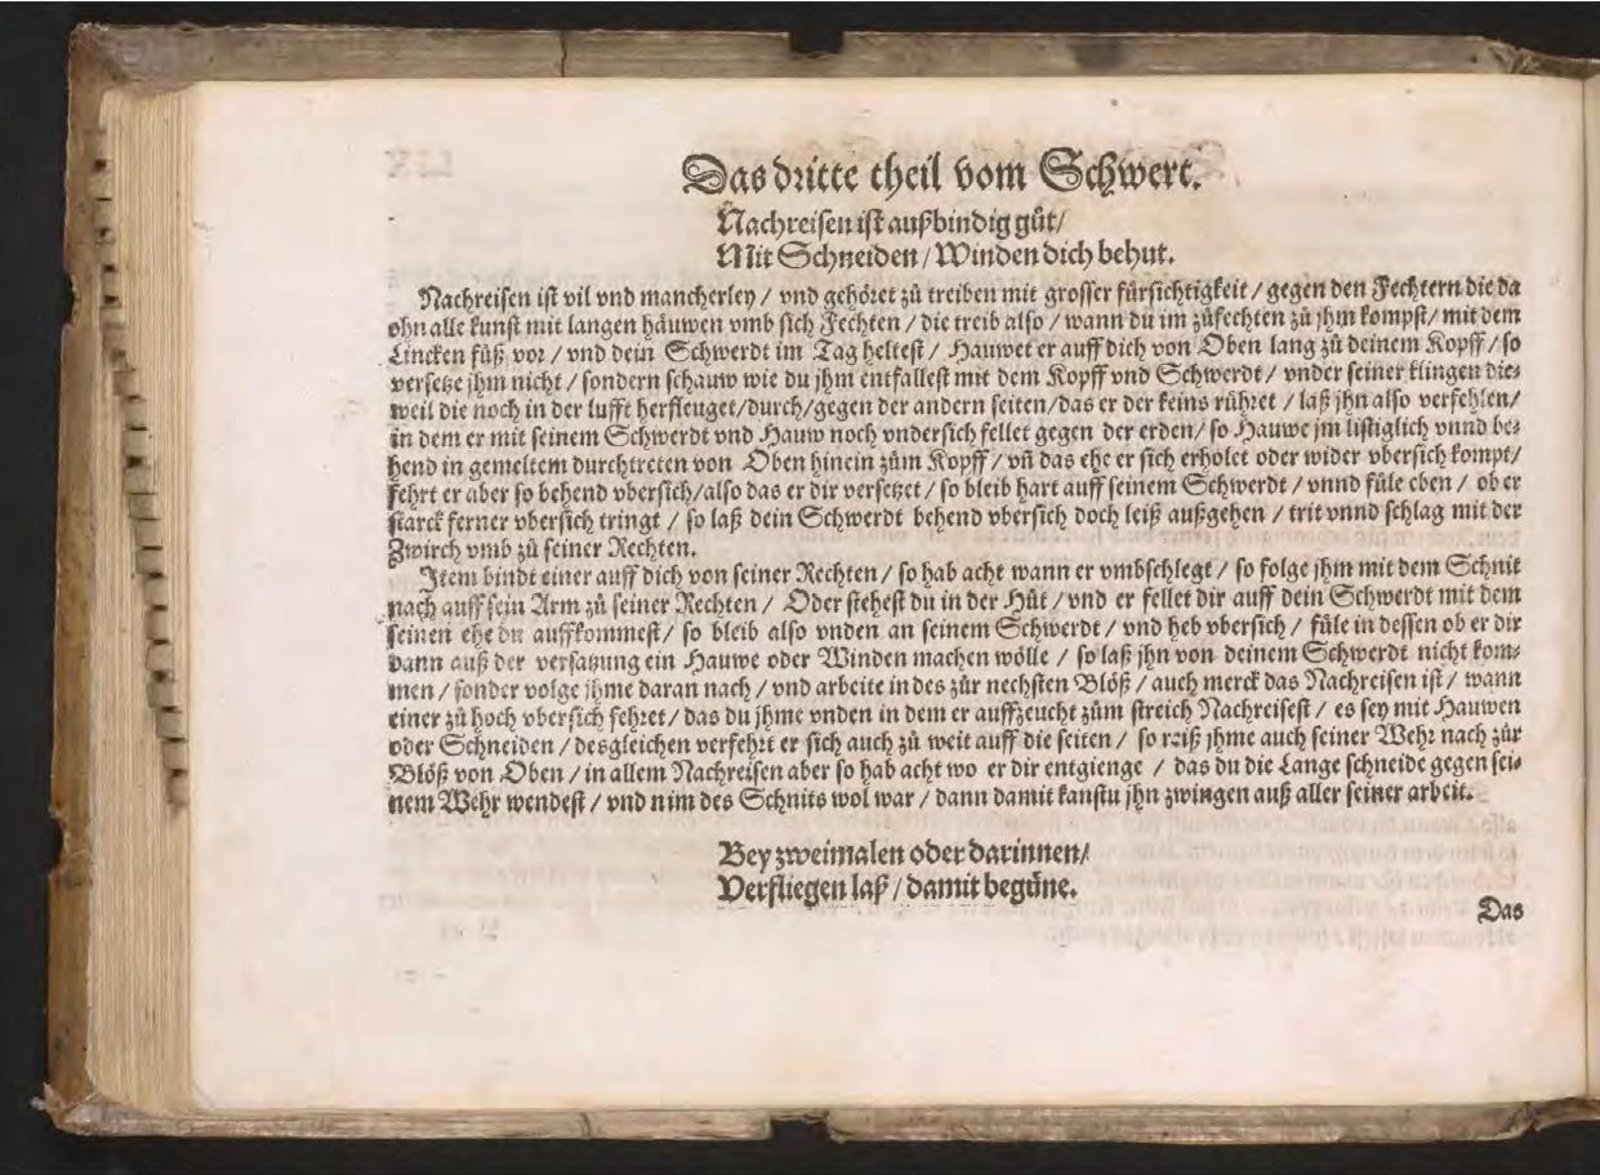 Das dritte theil vom Schwert.
Nachreisen ist außbindig gůt/
Mit Schneiden / Winden dich behut.
Nachreisen ist vil vnd mancherley / vnd gehöret zů treiben mit grosser fürsichtigkeit / gegen den Fechtern die da
ohn alle kunst mit langen häuwen vmb sich Fechten / die treib also / wann du im zůfechten zů jhm kompst / mit dem
Lincken fůß vor / vnd dein Schwerdt im Tag heltest / Hauwet er auff dich von Oben lang zů deinem Kopff / so
versetze jhm nicht / sondern schauw wie du jhm entfallest mit dem Kopff vnd Schwerdt / vnder seiner klingen die⸗
weil die noch in der lufft herfleuget/durch/gegen der andern seiten/das er der keins rühret / laß jhn also verfehlen/
in dem er mit seinem Schwerdt vnd Hauw noch vndersich fellet gegen der erden/ so Hauwe jm listiglich vnnd be⸗
hend in gemeltem durchtreten von Oben hinein zům Kopff / vñ das ehe er sich erholet oder wider vbersich kompt/
Fehrt er aber so behend vbersich/also das er dir versetzet / so bleib hart auff seinem Schwerdt / vnnd füle eben / ob er
starck ferner vbersich tringt / so laß dein Schwerdt behend vbersich doch leiß außgehen / trit vnnd schlag mit der
Zwirch vmb zů seiner Rechten.
Item bindt einer auff dich von seiner Rechten / so hab acht wann er vmbschlegt / so folge jhm mit dem Schnit
nach auff sein Arm zů seiner Rechten / Oder stehest du in der Hůt / vnd er fellet dir auff dein Schwerdt mit dem
seinen ehe du auffkommest / so bleib also vnden an seinem Schwerdt / vnd heb vbersich / füle in dessen ob er dir
dann auß der versatzung ein Hauwe oder Winden machen wölle / so laß jhn von deinem Schwerdt nicht kom⸗
men / sonder volge jhme daran nach / vnd arbeite in des zůr nechsten Blöß / auch merck das Nachreisen ist / wann
einer zů hoch vbersich fehret / das du jhme vnden in dem er auffzeucht zům streich Nachreisest / es sey mit Hauwen
oder Schneiden / desgleichen verfehrt er sich auch zů weit auff die seiten / so reiß jhme auch seiner Wehr nach zůr
Blöß von Oben / in allem Nachreisen aber so hab acht wo er dir entgienge / das du die Lange schneide gegen sei⸗
nem Wehr wendest / vnd nim des Schnits wol war / dann damit kanstu jhn zwingen auß aller seiner arbeit.
Bey zweimalen oder darinnen/
Verfliegen laß / damit begüne.
Das